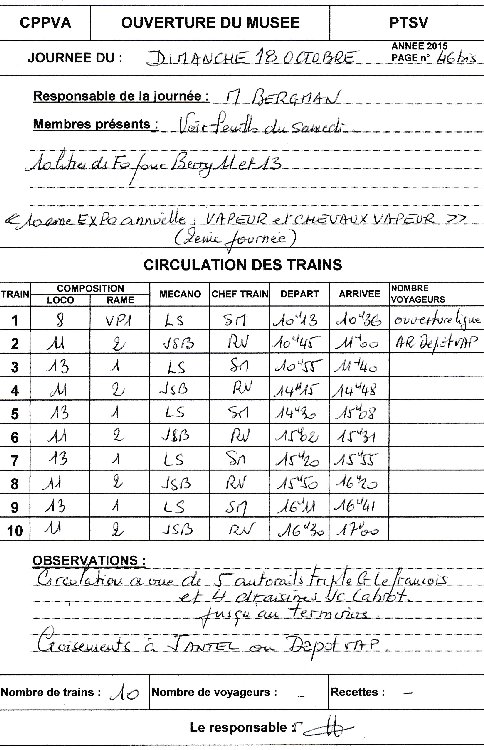 CPPVA OUVERTURE DU MUSEE PTSV
JOURNEE DU : DIMANCHE 18 OCTOBRE ANNEE 2015 PAGE n° 46 bis
Responsable de la journée : M BERGMAN
Membres présents : Voir feuille du samedi
10 litres de Fo Berry 11 et 13
<< 10eme EXPO annuelle : VAPEUR et CHEVAUX VAPEUR >>
(2eme journée)
CIRCULATION DES TRAINS
TRAIN COMPOSITION MECANO CHEF TRAIN DEPART ARRIVEE NOMBRE VOYAGEURS
LOCO RAME
1 8 VP1 LS SM 10H13 10H36 ouverture ligne
2 11 2 JSB RV 10H45 11H00 AR Depot VAP
3 13 1 LS SM 10H55 11H40
4 11 2 JSB RV 14H15 14H48
5 13 1 LS SM 14H30 15H08
6 11 2 JSB RV 15H02 15H31
7 13 1 LS SM 15H20 15H55
8 11 2 JSB RV 15H50 16H20
9 13 1 LS SM 16H11 16H41
10 11 2 JSB RV 16H30 17H00
OBSERVATIONS :
Circulation a vue de 5 autorails triple G Lefrancois
et 4 draisines Yc Labrot
jusqu'au terminus.
Croisements à JANTEL ou Depot VAP
Nombre de trains : 10 Nombre de voyageurs : - Recettes : -
Le responsable :